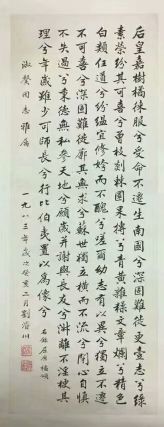 后皇嘉樹橘徠服兮受命不遷生南國兮深固難徙更壹志兮綠葉
素榮紛其可喜兮曾枝剡棘圓果摶兮青黃雜糅文章爛兮精色內
白類任道兮紛緼宜修姱而不醜兮嗟爾幼志有以異兮獨立不遷豈
不可喜兮深固難徙廓其無求兮蘇世獨立橫而不流兮閉心自慎終
不失過兮秉德無私參天地兮願歲并謝與長友兮淑離不淫梗其有
理兮年歲雖少可師長兮行比伯夷置以為像兮
右錄屈原橘頌
同志雅屬
一九八三年歲次癸亥二月劉濟川